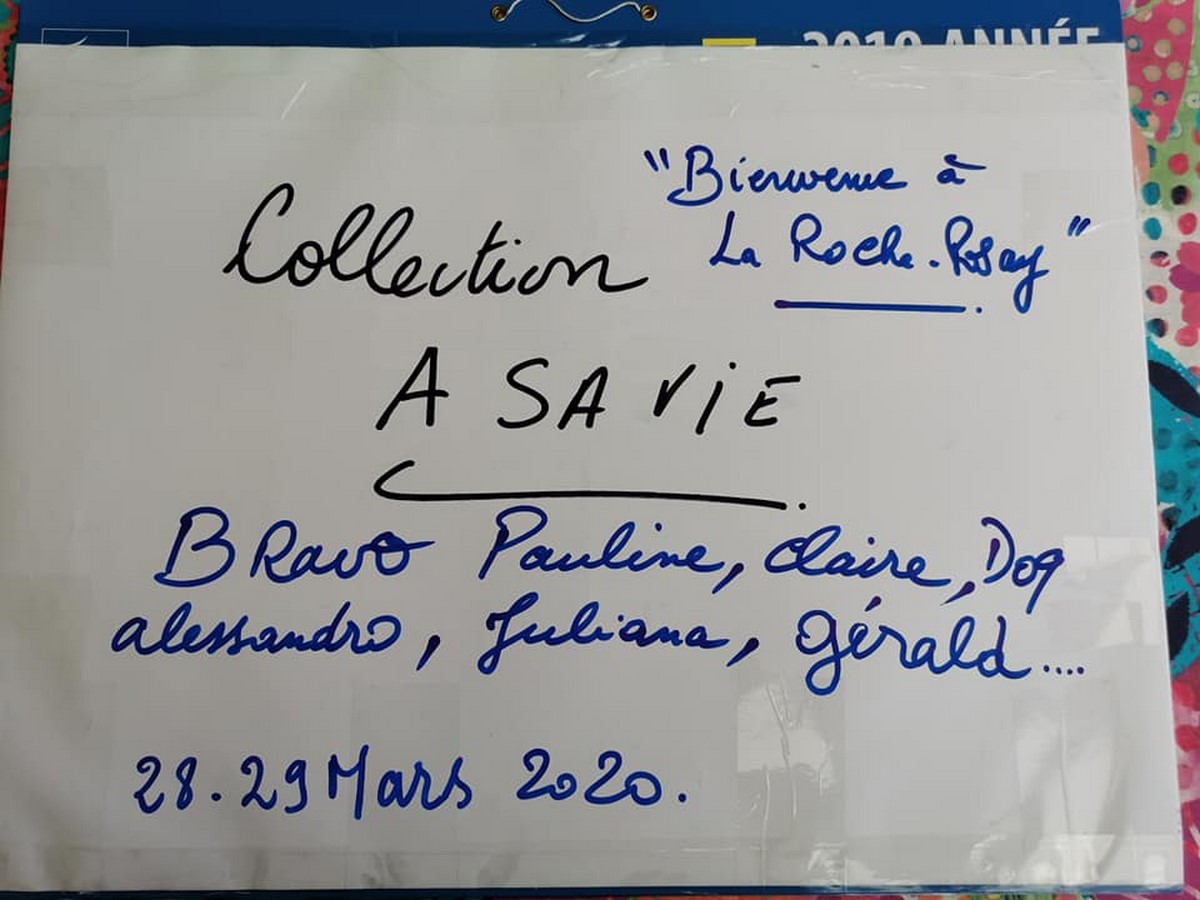 2019 ANNÉE
"Bienvenue à
La Roche-Posay"
Collection
A SA ViE
BRavo Pauline, claire, Dog
alessandro, Juliana, Gérald....
28.29 Mars 2020.